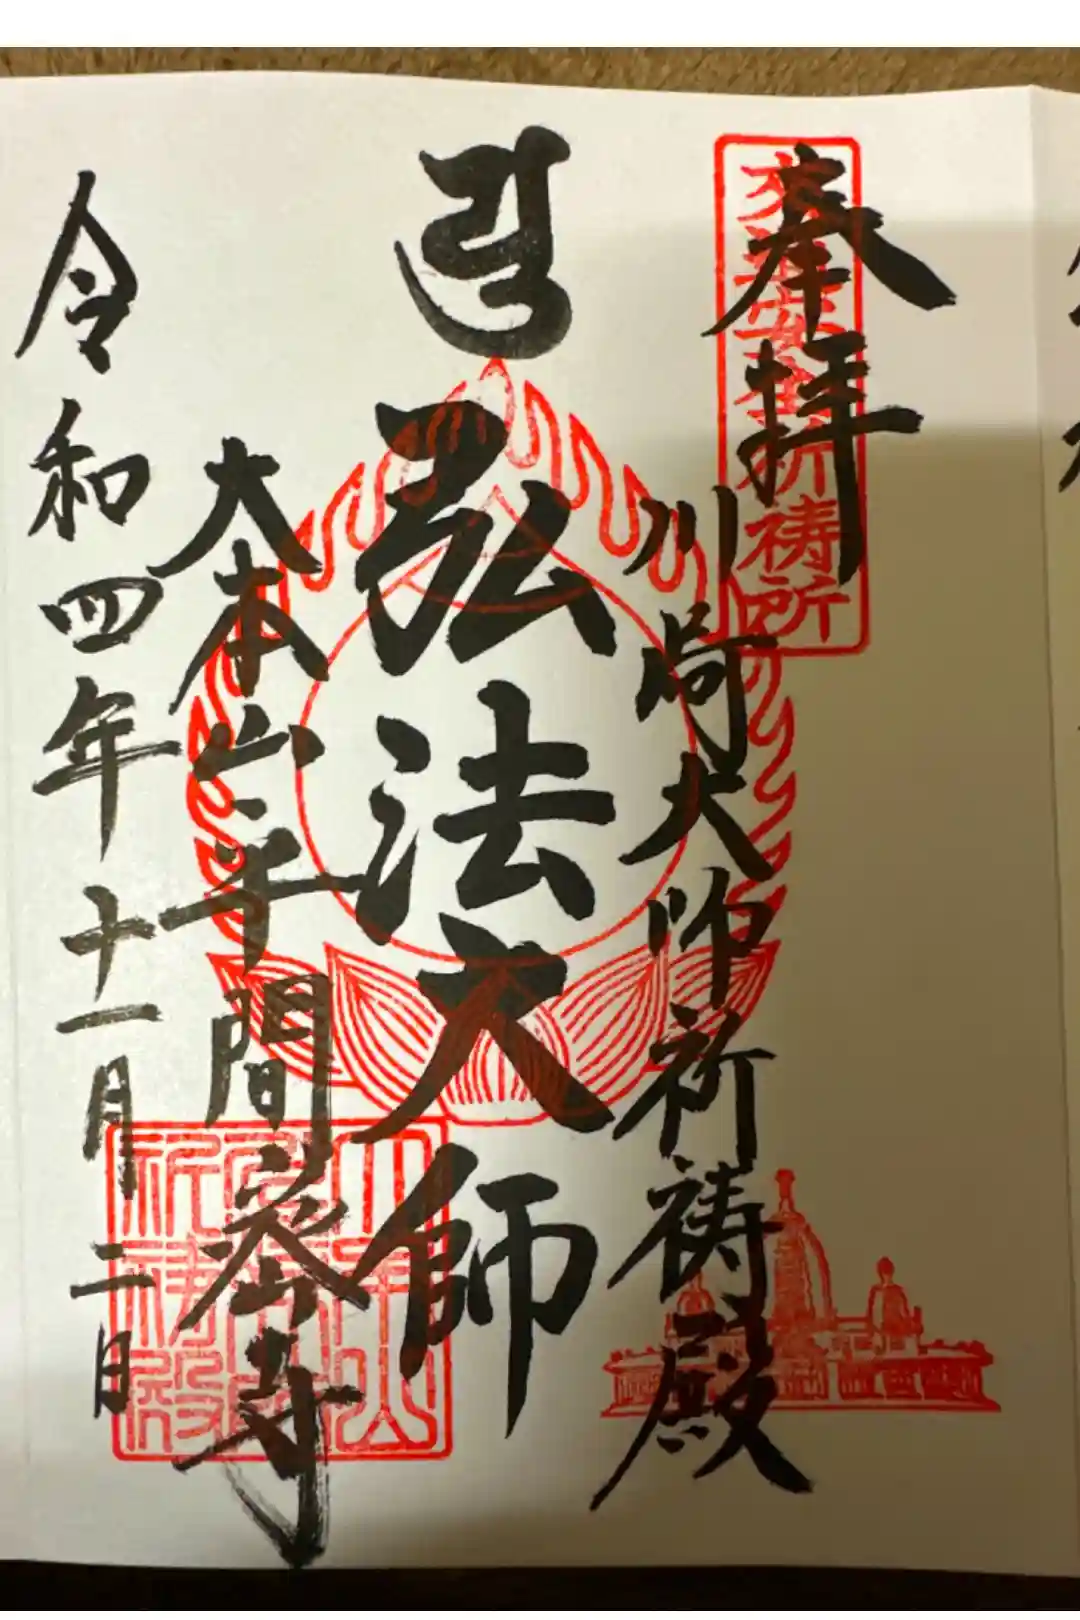 奉拝
交通安全祈祷所
川崎大師祈祷殿
弘法大師
大本山平間密寺
祈祷殿
令和四年十一月二日